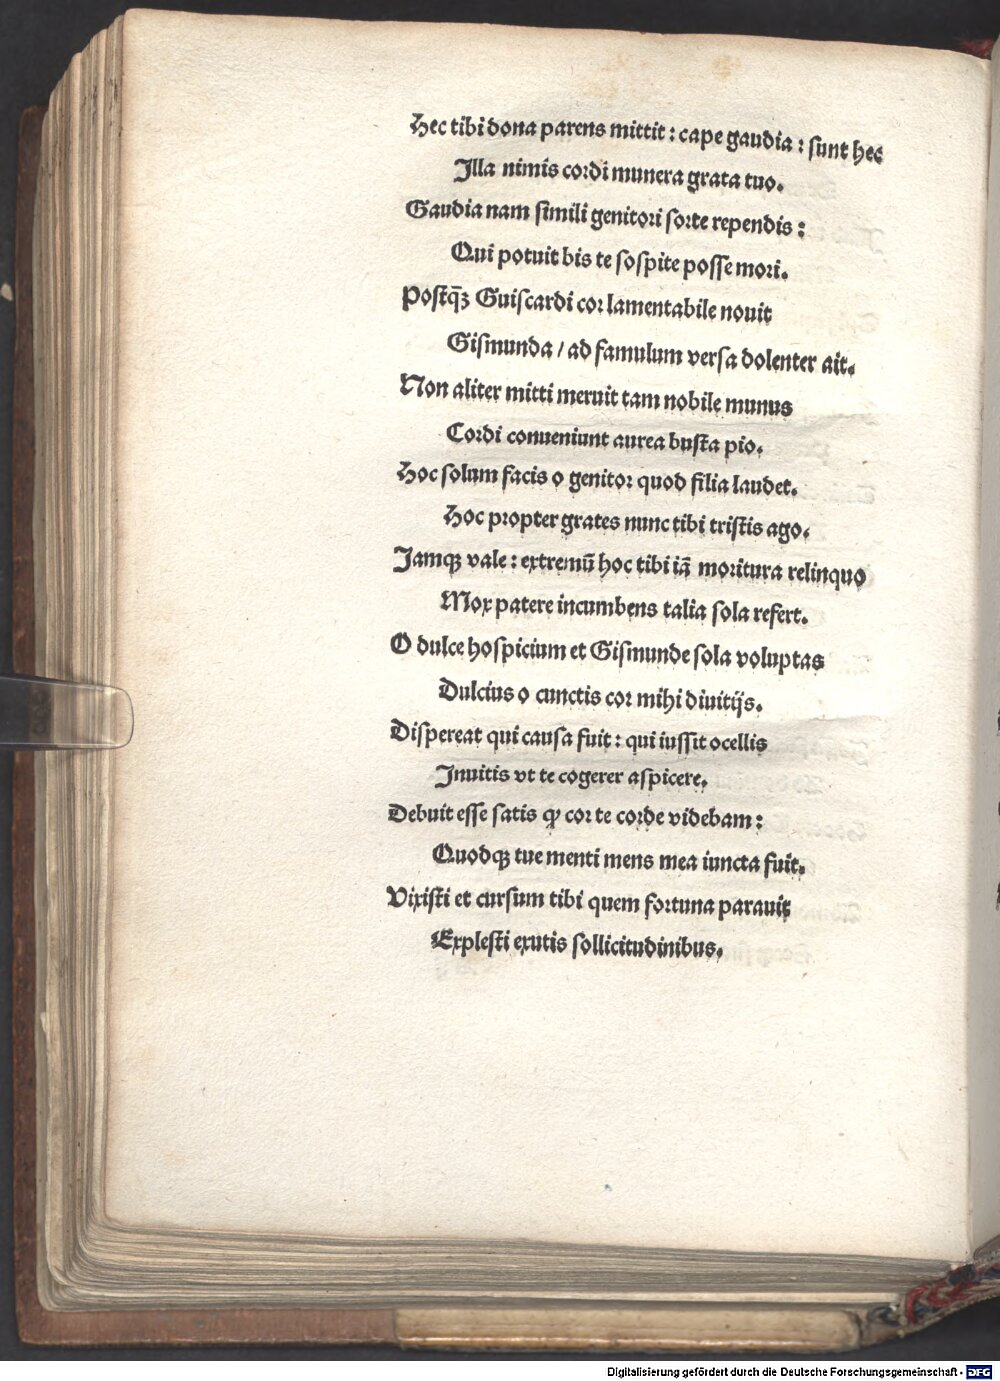 Hec tibi dona parens mittit : cape gaudia : sunt hec
Illa nimis cordi munera grata tuo.
Gaudia nam simili genitori sorte rependis :
Qui potuit bis te sospite posse mori.
Postqꝫ Guiscardi cor lamentabile nouit
Gismunda / ad famulum versa dolenter ait.
Non aliter mitti meruit tam nobile munus
Cordi conueniunt aurea busta pio.
Hoc solum facis o genitor quod filia laudet.
Hoc propter grates nunc tibi tristis ago.
Iamqꝫ vale : extremū hoc tibi iā moritura relinquo
Mox patere incumbens talia sola refert.
O dulce hospicium et Gismunde sola voluptas
Dulcius o cunctis cor mihi diuitijs.
Dispereat qui causa fuit : qui iussit ocellis
Inuitis vt te cogerer aspicere.
Debuit esse satis ꝙ cor te corde videbam :
Quodqꝫ tue menti mens mea iuncta fuit.
Vixisti et cursum tibi quem fortuna parauit
Explesti exutis sollicitudinibus.
Digitalisierung gefördert durch die Deutsche Forschungsgemeinschaft - DFG